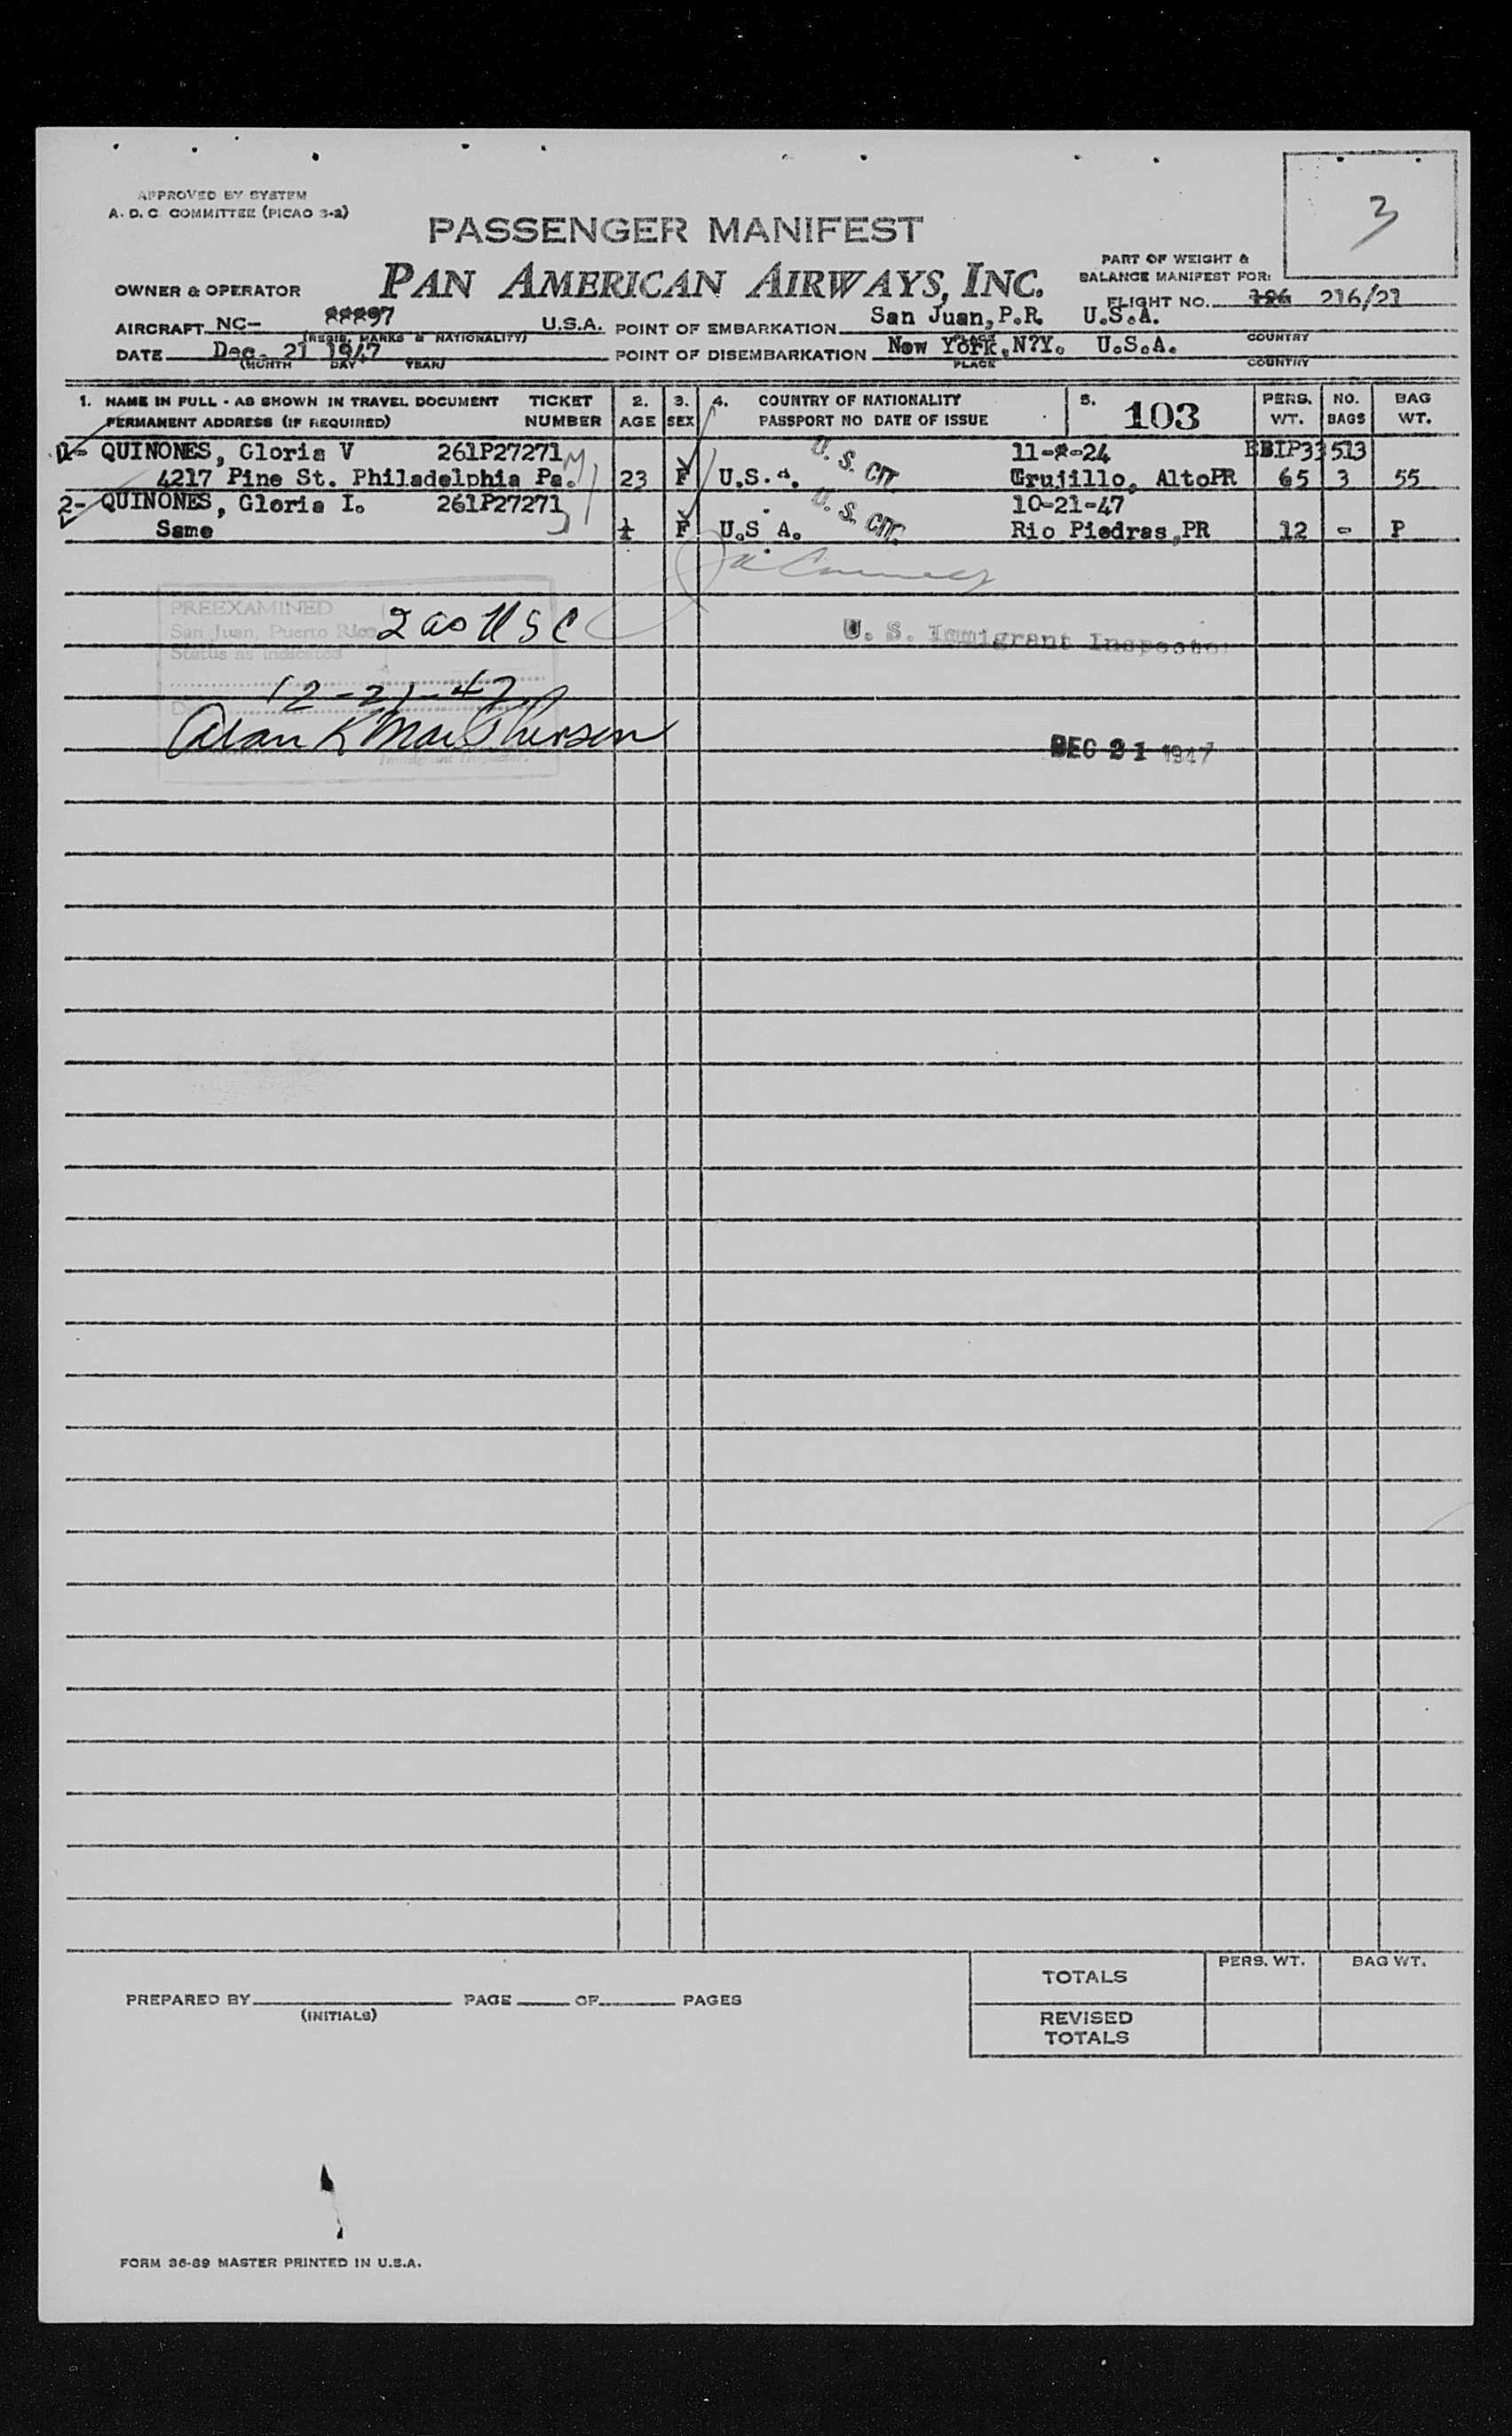 APPROVED BY SYSTEM
A. D. C. COMMITTEE (PICAO 3-2)
3
PASSENGER MANIFEST
PART OF WEIGHT &
BALANCE MANIFEST FOR:
OWNER & OPERATOR PAN AMERICAN AIRWAYS, INC.
FLIGHT NO. 216/21
AIRCRAFT NC- 97 U.S.A. POINT OF EMBARKATION San Juan, P.R. U.S.A.
(REGIS. MARKS & NATIONALITY) PLACE COUNTRY
DATE Dec. 21 1947 POINT OF DISEMBARKATION New York, N?Y. U.S.A.
(MONTH DAY YEAR) PLACE COUNTRY
1. NAME IN FULL - AS SHOWN IN TRAVEL DOCUMENT TICKET 2. 3. 4. COUNTRY OF NATIONALITY 5. 103 PERS. NO. BAG
PERMANENT ADDRESS (IF REQUIRED) NUMBER AGE SEX PASSPORT NO DATE OF ISSUE WT. BAGS WT.
1- QUINONES, Gloria V 261P27271 U. S. CIT. 11-8-24 513
4217 Pine St. Philadelphia Pa. 23 F U.S.A. Trujillo, AltoPR 65 3 55
2- QUINONES, Gloria I. 261P27271 U. S. CIT. 10-21-47
Same F U.S A. Rio Piedras,PR 12 - P
PREEXAMINED
San Juan, Puerto Rico 2 as USC
Status as indicated
U. S. Immigrant Inspector
12-21-47
Alan K MacPherson
Immigrant Inspector.
DEC 21 1947
TOTALS PERS. WT. BAG WT.
PREPARED BY PAGE OF PAGES
(INITIALS)
REVISED
TOTALS
FORM 36-89 MASTER PRINTED IN U.S.A.